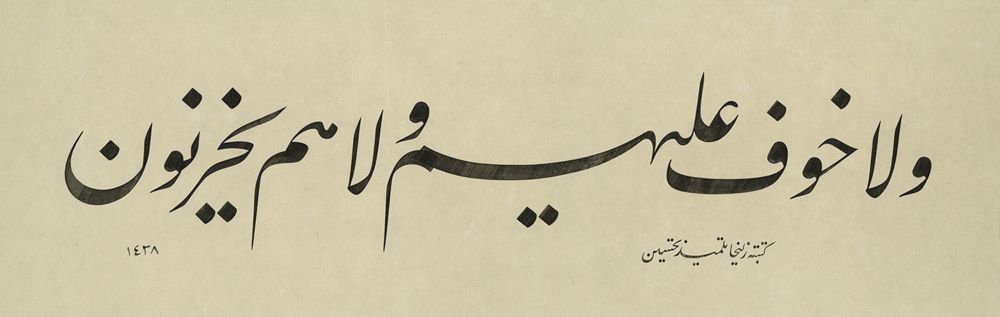 ولا خوف عليهم ولا هم يحزنون
كتبته زليخا تلميذ تحسين
١٤٣٨